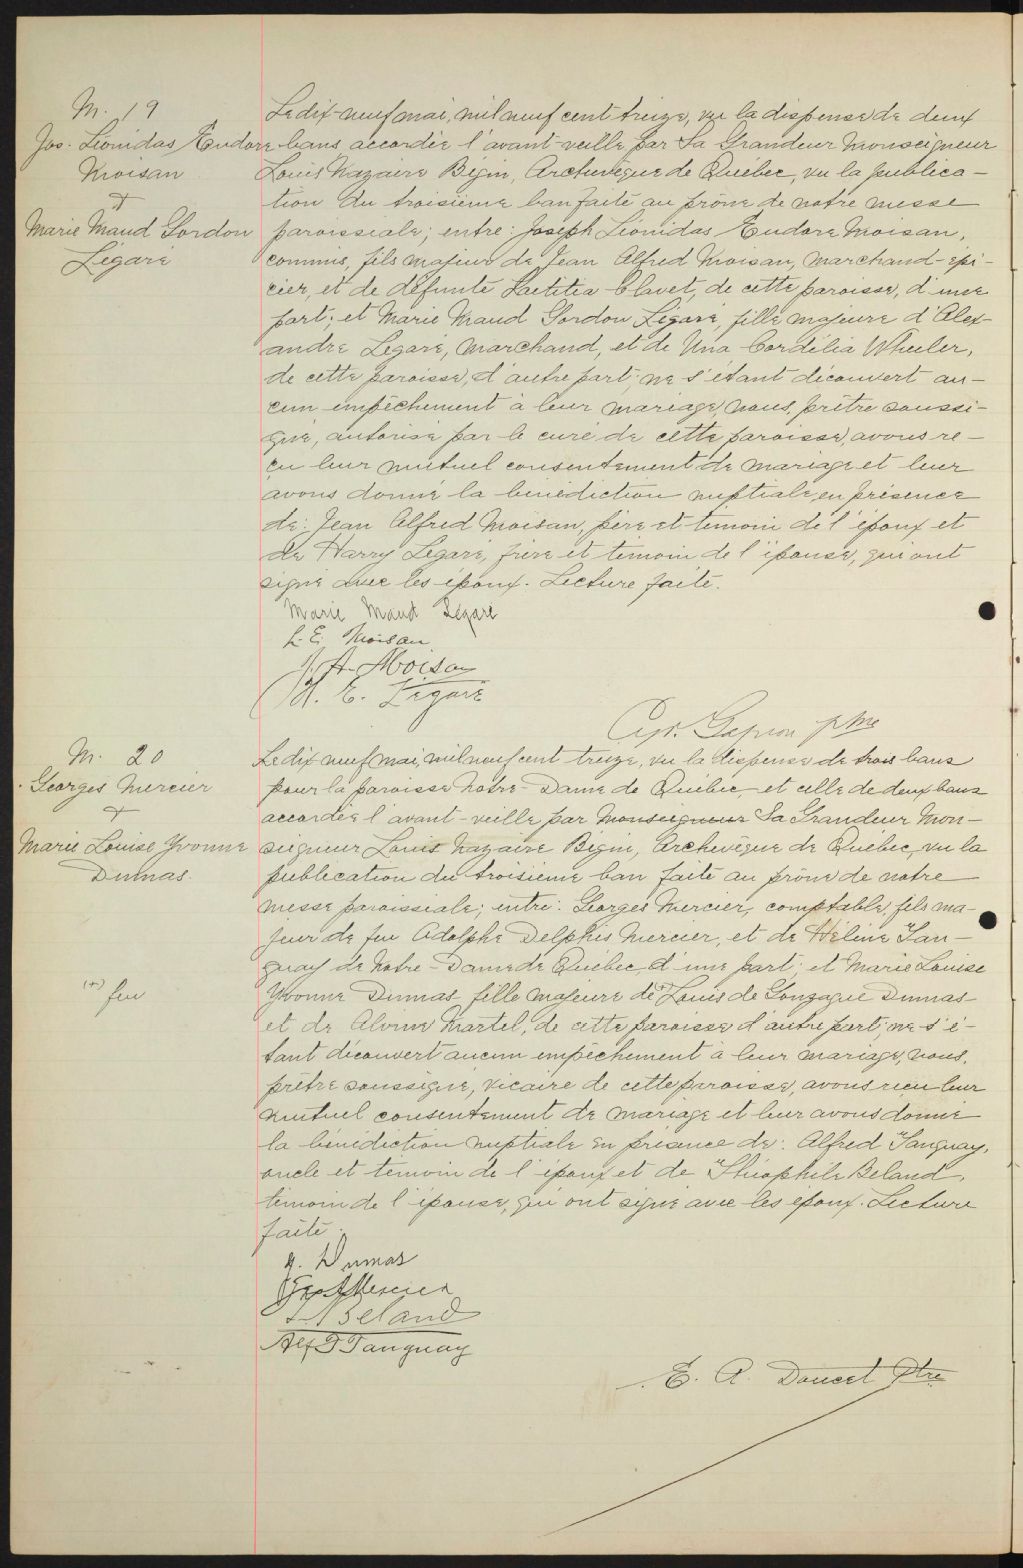 M. 19
Jos. Léonidas Eudore
Moisan
+
Marie Maud Gordon
Légaré
Le dix-neuf mai, mil neuf cent treize, vu la dispense de deux
bans accordée l'avant-veille par Sa Grandeur Monseigneur
Louis Nazaire Bégin, Archevêque de Québec, vu la publica-
tion du troisième ban faite au prône de notre messe
paroissiale; entre: Joseph Léonidas Eudore Moisan,
commis, fils majeur de Jean Alfred Moisan, marchand-épi-
cier, et de défunte Laetitia Clavet, de cette paroisse, d'une
part; et Marie Maud Gordon Légaré, fille majeure d'Alex-
andre Légaré, marchand, et de Una Cordélia Wheeler,
de cette paroisse, d'autre part; ne s'étant découvert au-
cun empêchement à leur mariage, nous, prêtre soussi-
gné, autorisé par le curé de cette paroisse, avons re-
çu leur mutuel consentement de mariage et leur
avons donné la bénédiction nuptiale, en présence
de: Jean Alfred Moisan, père et témoin de l'époux et
de Harry Légaré, frère et témoin de l'épouse, qui ont
signé avec les époux. Lecture faite.
Marie Maud Légaré
L. E. Moisan
J. A. Moisan
H. E. Légaré
ptre
M. 20
Georges Mercier
+
Marie Louise Yvonne
Dumas.
(+) feu
Le dix-neuf mai, mil neuf cent treize, vu la dispense de trois bans
pour la paroisse Notre-Dame de Québec, et celle de deux bans
accordée l'avant-veille par Monseigneur Sa Grandeur Mon-
seigneur Louis Nazaire Bégin, Archevêque de Québec, vu la
publication du troisième ban faite au prône de notre
messe paroissiale; entre: Georges Mercier, comptable, fils ma-
jeur de feu Adolphe Delphis Mercier, et de Hélène Tan-
guay de Notre-Dame de Québec, d'une part; et Marie Louise
Yvonne Dumas fille majeure de (+) Louis de Gonzague Dumas
et de Alvine Martel, de cette paroisse d'autre part; ne s'é-
tant découvert aucun empêchement à leur mariage, nous,
prêtre soussigné, vicaire de cette paroisse, avons reçu leur
mutuel consentement de mariage et leur avons donné
la bénédiction nuptiale en présence de: Alfred Tanguay,
oncle et témoin de l'époux et de Théophile Beland,
témoin de l'épouse, qui ont signé avec les époux. Lecture
faite.
Y. Dumas
Mercier
Beland
Alf T Tanguay
E. A. Doucet Ptre